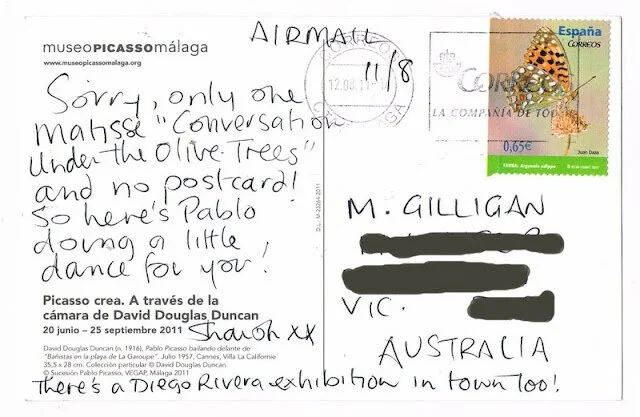 AIRMAIL
museoPICASSOmálaga
www.museopicassomalaga.org
Sorry, only one
Matisse "Conversation
Under the Olive Trees"
and no postcard!
So here's Pablo
doing a little
dance for you!
Picasso crea. A través de la
cámara de David Douglas Duncan
20 junio – 25 septiembre 2011
Sharon xx
David Douglas Duncan (n. 1916), Pablo Picasso bailando delante de
"Bañistas en la playa de La Garoupe". Julio 1957, Cannes, Villa La Californie
35,5 x 28 cm. Colección particular © David Douglas Duncan
© Sucesión Pablo Picasso, VEGAP, Málaga 2011
There's a Diego Rivera exhibition in town too!
CORREOS
12.08.11
11/8
CORREOS
LA COMPAÑIA DE TOD
España
CORREOS
Juan Daza
0,65€
M. GILLIGAN
VIC.
AUSTRALIA